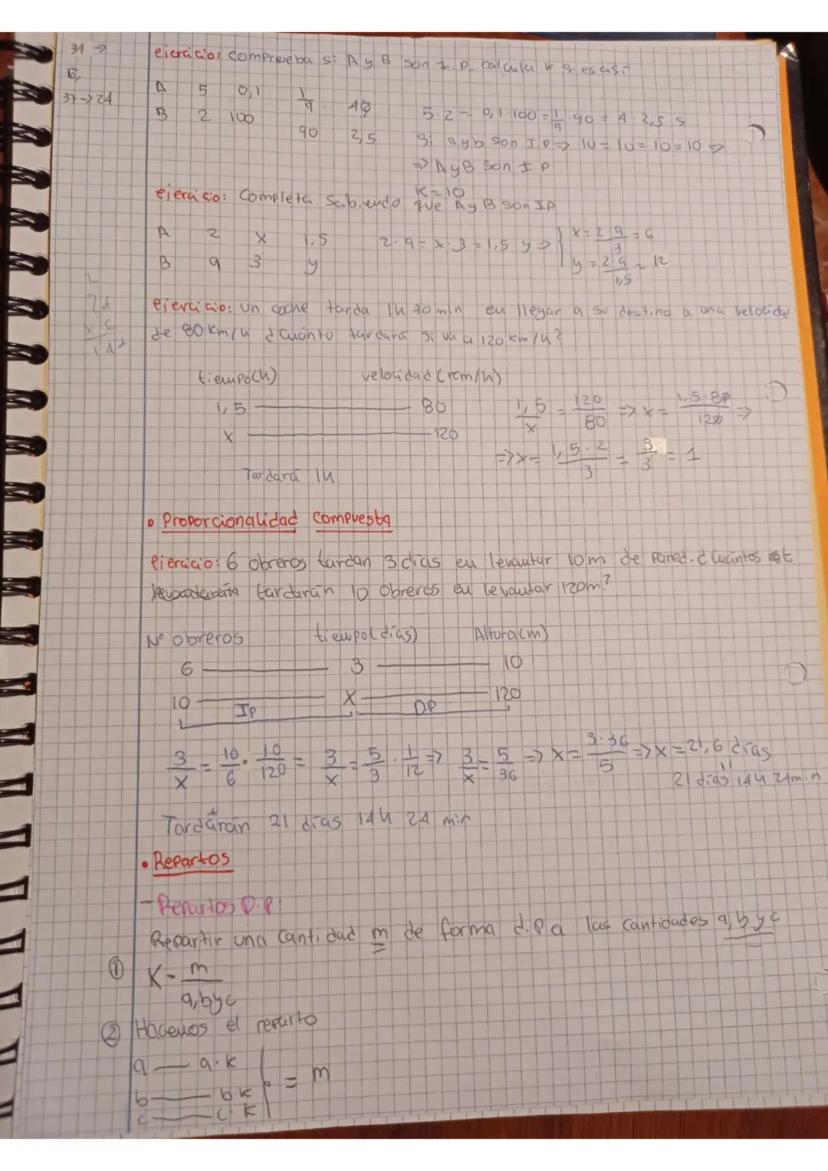 31 →
6,
37→24
ejercicio: comprueba si A y B son I.P, calcula K si es así-
A 5 0,1 1/9 4
B 2 100 90 2,5
5·2 = 0,1·100 = 1/9·90 = 4·2,5 s
Si a y b son I.P ⇒ 10 = 10 = 10 = 10 ⇒
⇒ A y B son I.P
K=10
ejercicio: Completa sabiendo que A y B son IP
A 2 x 1.5
B 9 3 y
2·9 = x·3 = 1,5 y ⇒ { x = 2·9/3 = 6
y = 2·9/1,5 = 12
ejercicio: un coche tarda 1h 30min en llegar a su destino a una velocidad
de 80km/h ¿cuánto tardará si va a 120 km/h?
tiempo(h) velocidad (km/h)
1,5 80
x 120
1,5/x = 120/80 ⇒ x = 1,5·80/120 ⇒
⇒ x = 1,5·2/3 = 3/3 = 1
Tardará 1h
• Proporcionalidad compuesta
ejercicio: 6 obreros tardan 3 días en levantar 10m de pared. ¿Cuántos
tardarán 10 obreros en levantar 120m?
Nº obreros tiempo(días) Altura(m)
6 3 10
10 X 120
IP DP
3/x = 10/6 · 10/120 = 3/x = 5/3 · 1/12 ⇒ 3/x = 5/36 ⇒ x = 3·36/5 ⇒ x = 21,6 días
21 días 14h 24min
Tardarán 21 días 14h 24 min
• Repartos
- Repartos D.P:
Repartir una cantidad m de forma d.p a las cantidades a, b y c
① K = m/a,byc
② Hacemos el reparto
a — a·k
b — b·k = m
c — c·k